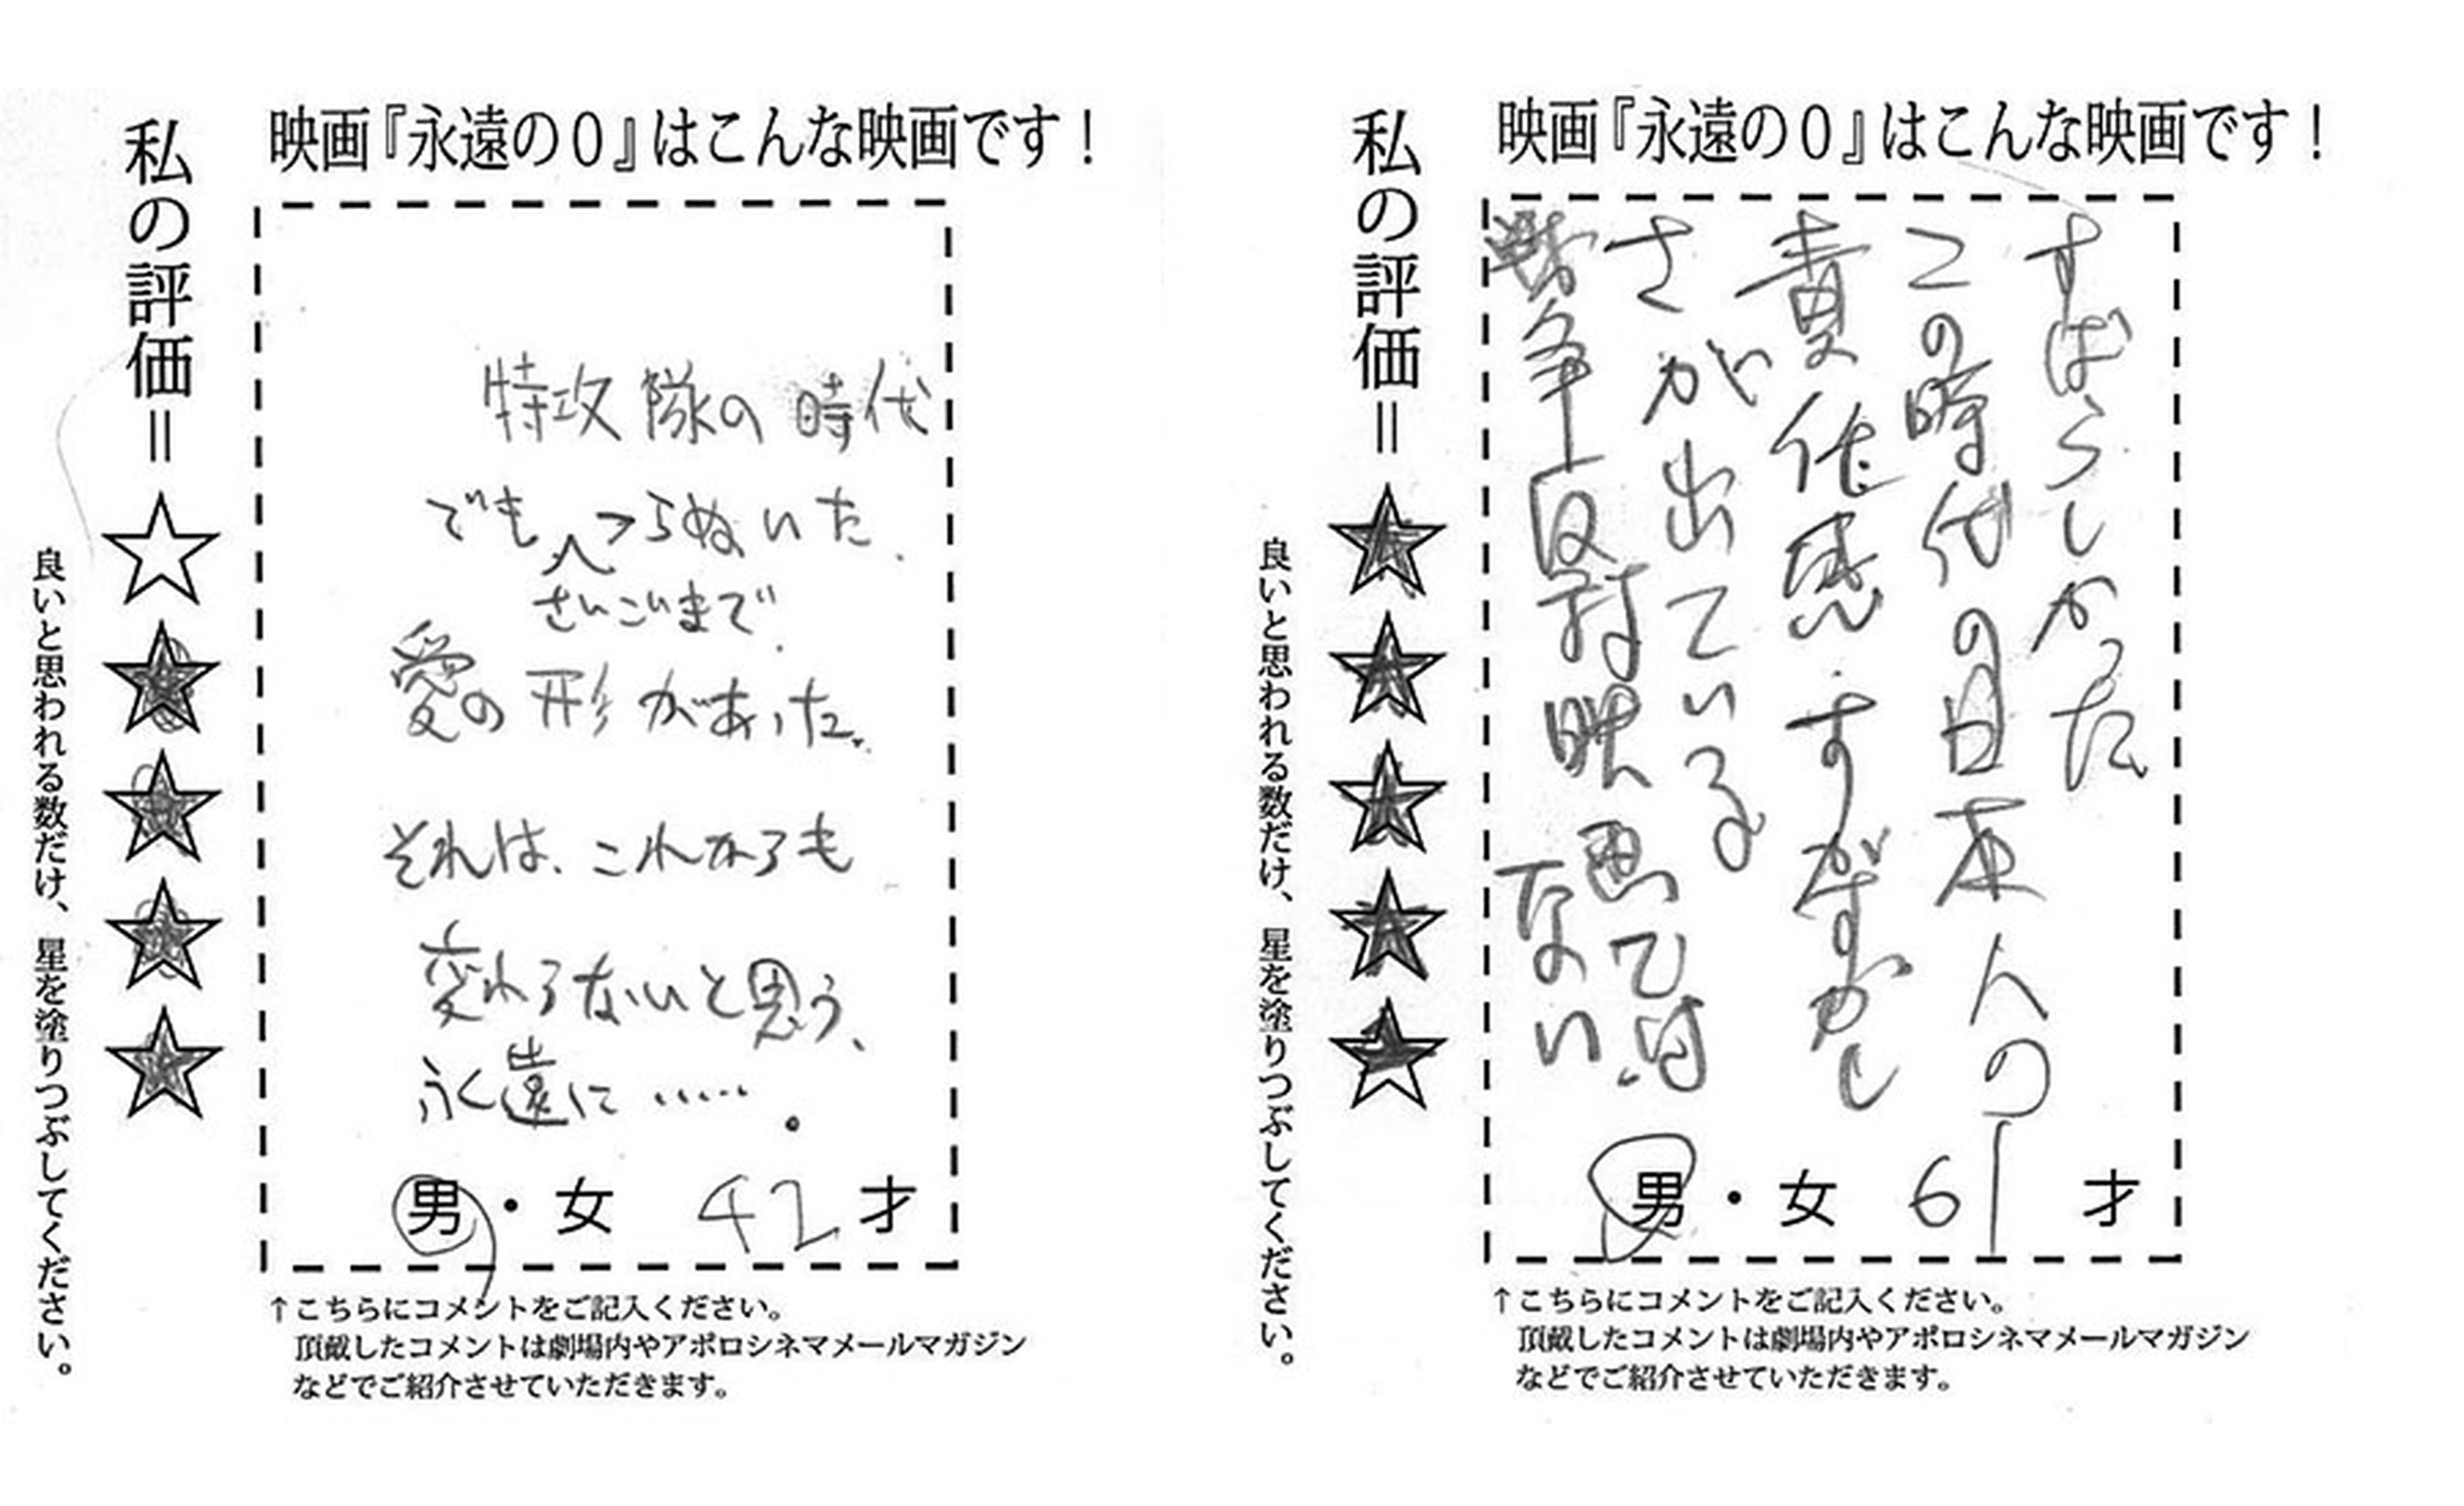 映画『永遠の0』はこんな映画です！
私の評価＝☆★★★★
良いと思われる数だけ、星を塗りつぶしてください。
特攻隊の時代
でも つらぬいた.
さいごまで.
愛の形があった.
それは、これからも
変わらないと思う、
永遠に…….
男・女 42才
↑こちらにコメントをご記入ください。
頂戴したコメントは劇場内やアポロシネマメールマガジン
などでご紹介させていただきます。
映画『永遠の0』はこんな映画です！
私の評価＝★★★★★
良いと思われる数だけ、星を塗りつぶしてください。
すばらしかった
この時代の日本人の
責任感・すがすがし
さが出ている
戦争反対映画では
ない
男・女 61才
↑こちらにコメントをご記入ください。
頂戴したコメントは劇場内やアポロシネマメールマガジン
などでご紹介させていただきます。